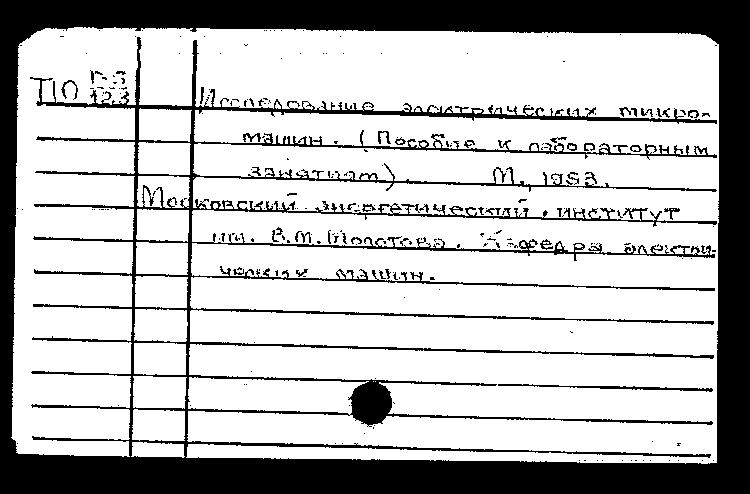 П10 Г-5
123
Исследование электрических микро-
машин. (Пособие к лабораторным
занятиям). М., 1953.
Московский энергетический институт
им. В.М. Молотова. Кафедра электри-
ческих машин.